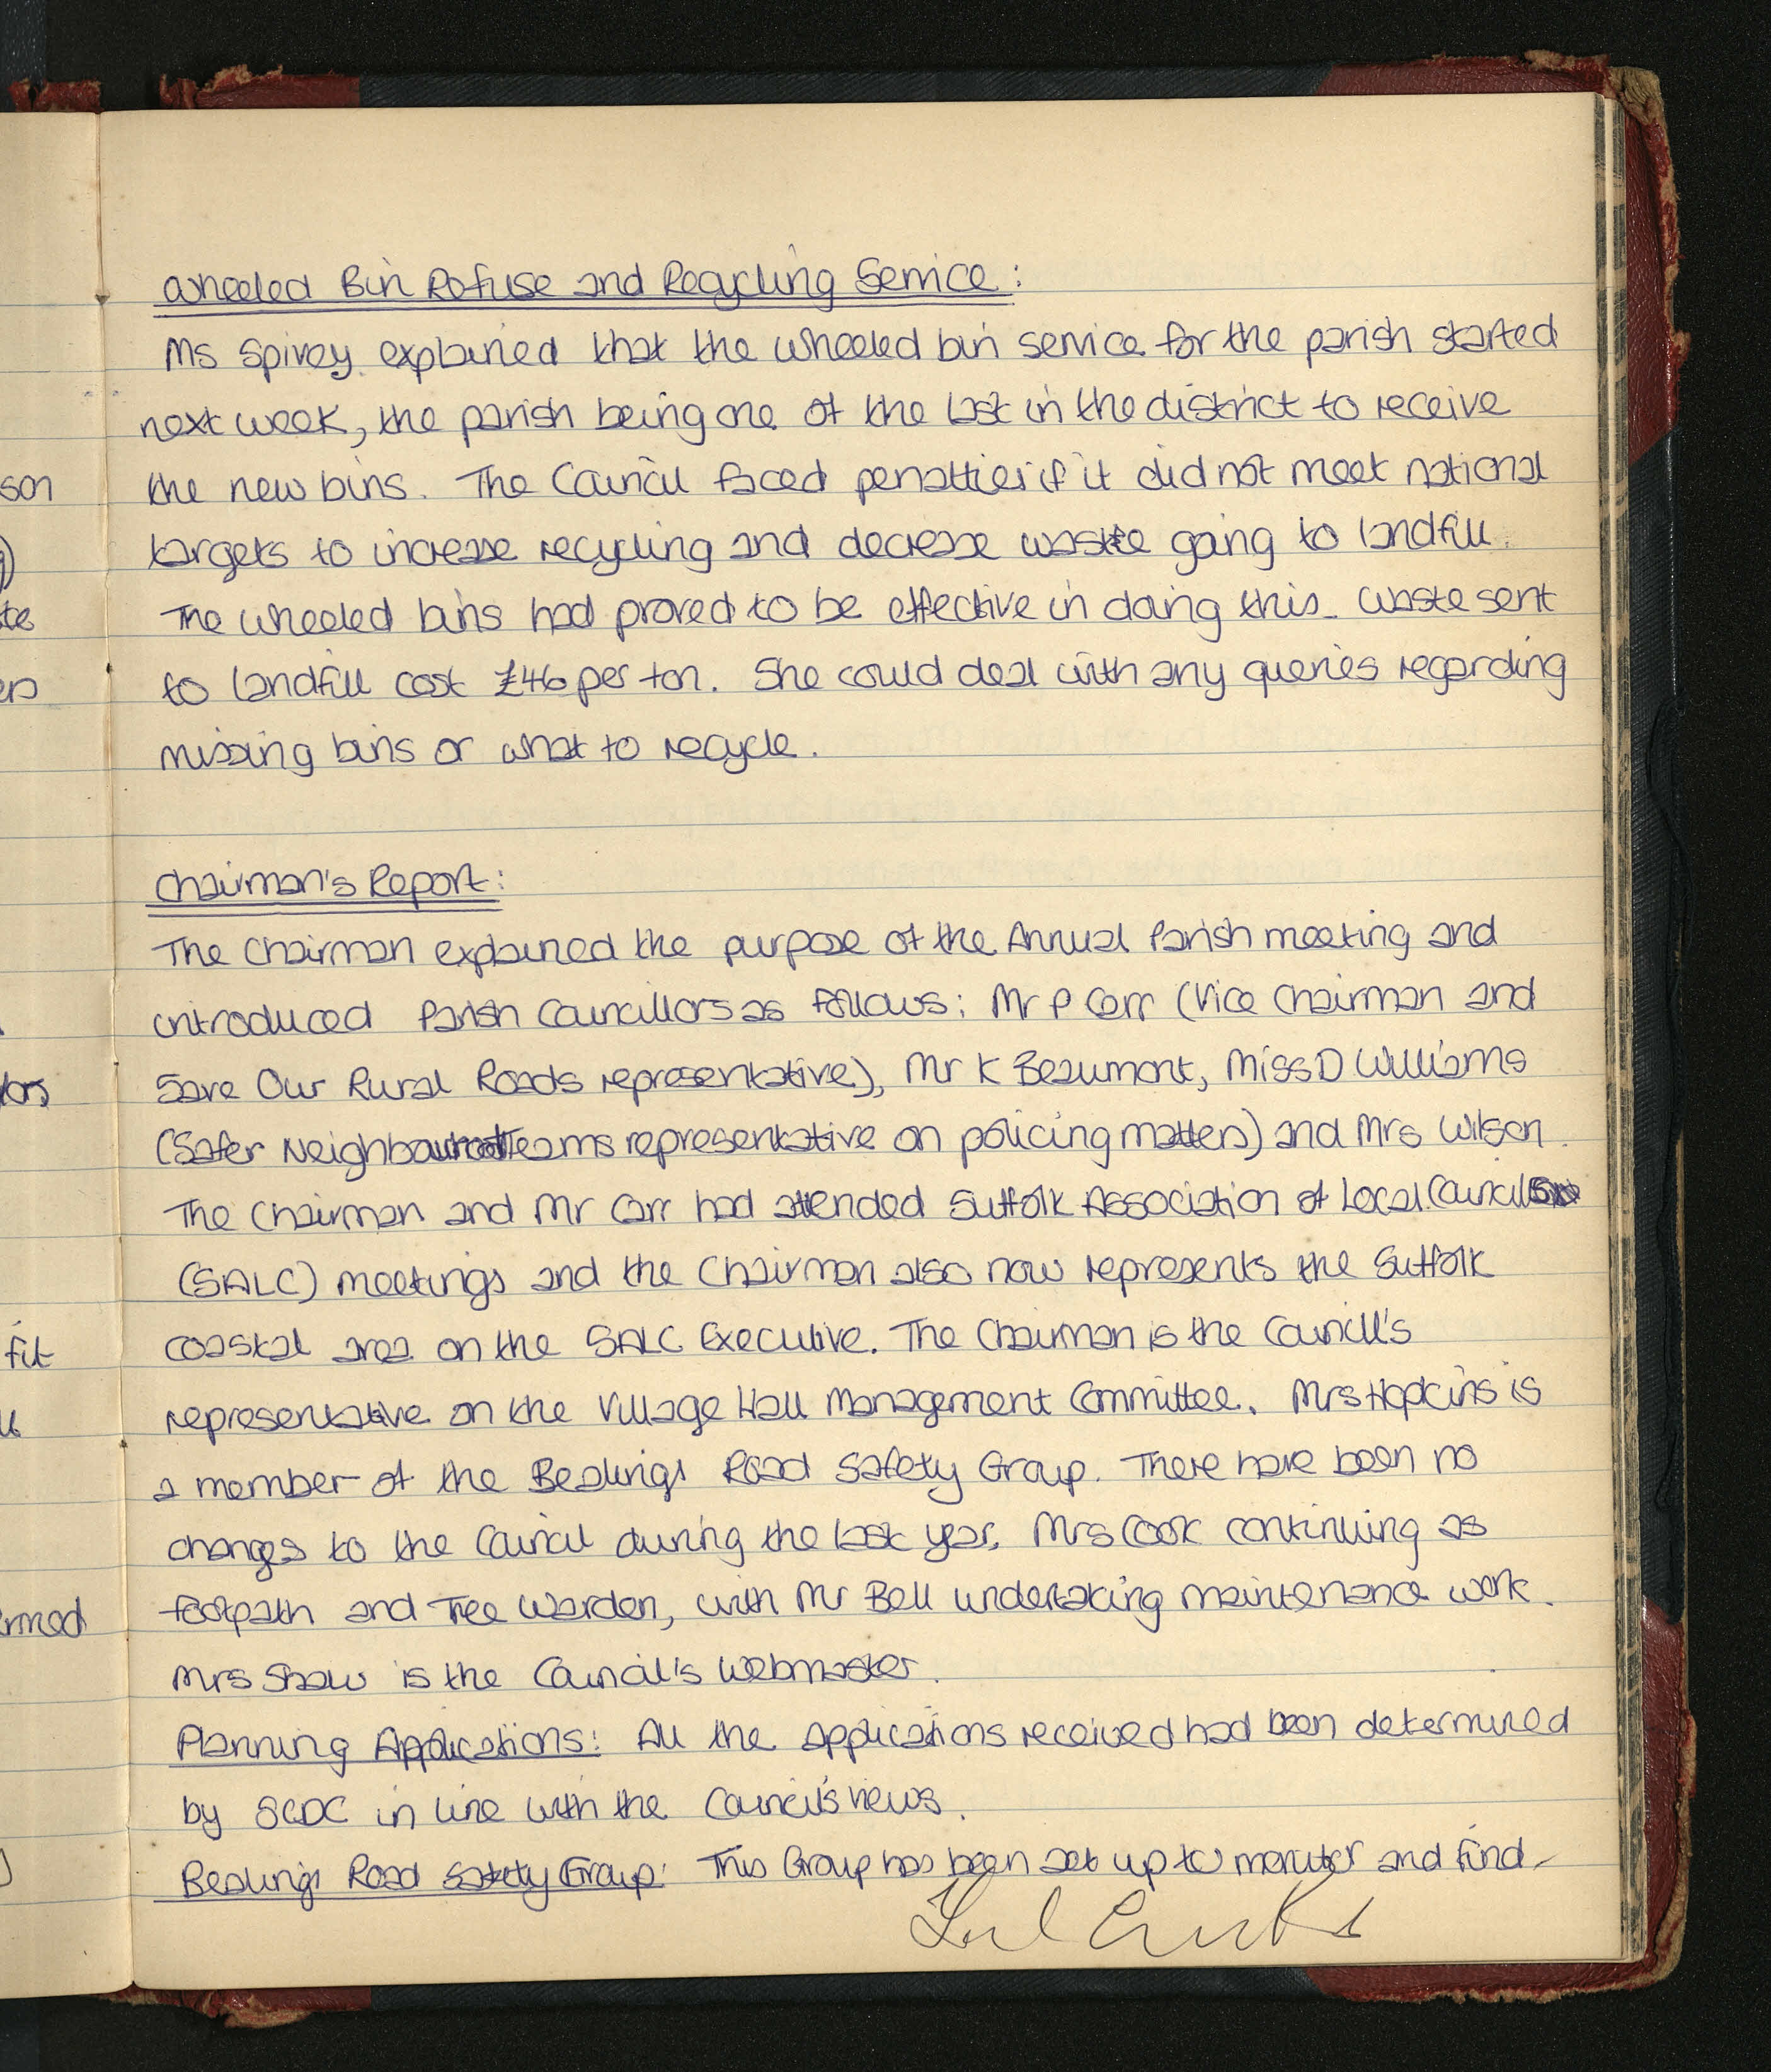 Wheeled Bin Refuse and Recycling Service:
Ms Spivey explained that the wheeled bin service for the parish started
next week, the parish being one of the last in the district to receive
the new bins. The Council faced penalties if it did not meet national
targets to increase recycling and decrease waste going to landfill.
The wheeled bins had proved to be effective in doing this. Waste sent
to landfill cost £46 per ton. She could deal with any queries regarding
missing bins or what to recycle.
Chairman's Report:
The Chairman explained the purpose of the Annual Parish Meeting and
introduced Parish Councillors as follows: Mr P Carr (Vice Chairman and
Save Our Rural Roads representative), Mr K Beaumont, Miss D Williams
(Safer Neighbourhood Teams representative on policing matters) and Mrs Wilson.
The Chairman and Mr Carr had attended Suffolk Association of Local Councils
(SALC) meetings and the Chairman also now represents the Suffolk
coastal area on the SALC Executive. The Chairman is the Council's
representative on the Village Hall Management Committee. Mrs Hopkins is
a member of the Bealings Road Safety Group. There have been no
changes to the Council during the last year, Mrs Cook continuing as
footpath and Tree Warden, with Mr Bell undertaking maintenance work.
Mrs Shaw is the Council's Webmaster.
Planning Applications: All the applications received had been determined
by SCDC in line with the Council's views.
Bealings Road Safety Group: This Group has been set up to monitor and find
son
te
ers
lors
fit
rmed